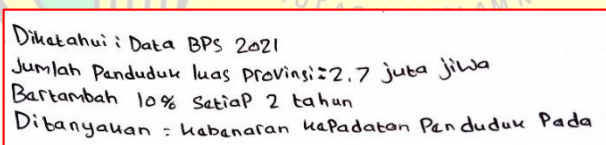 Diketahui : Data BPS 2021
Jumlah Penduduk luas Provinsi = 2.7 juta jiwa
Bertambah 10% Setiap 2 tahun
Ditanyakan = kebenaran kepadatan Penduduk Pada